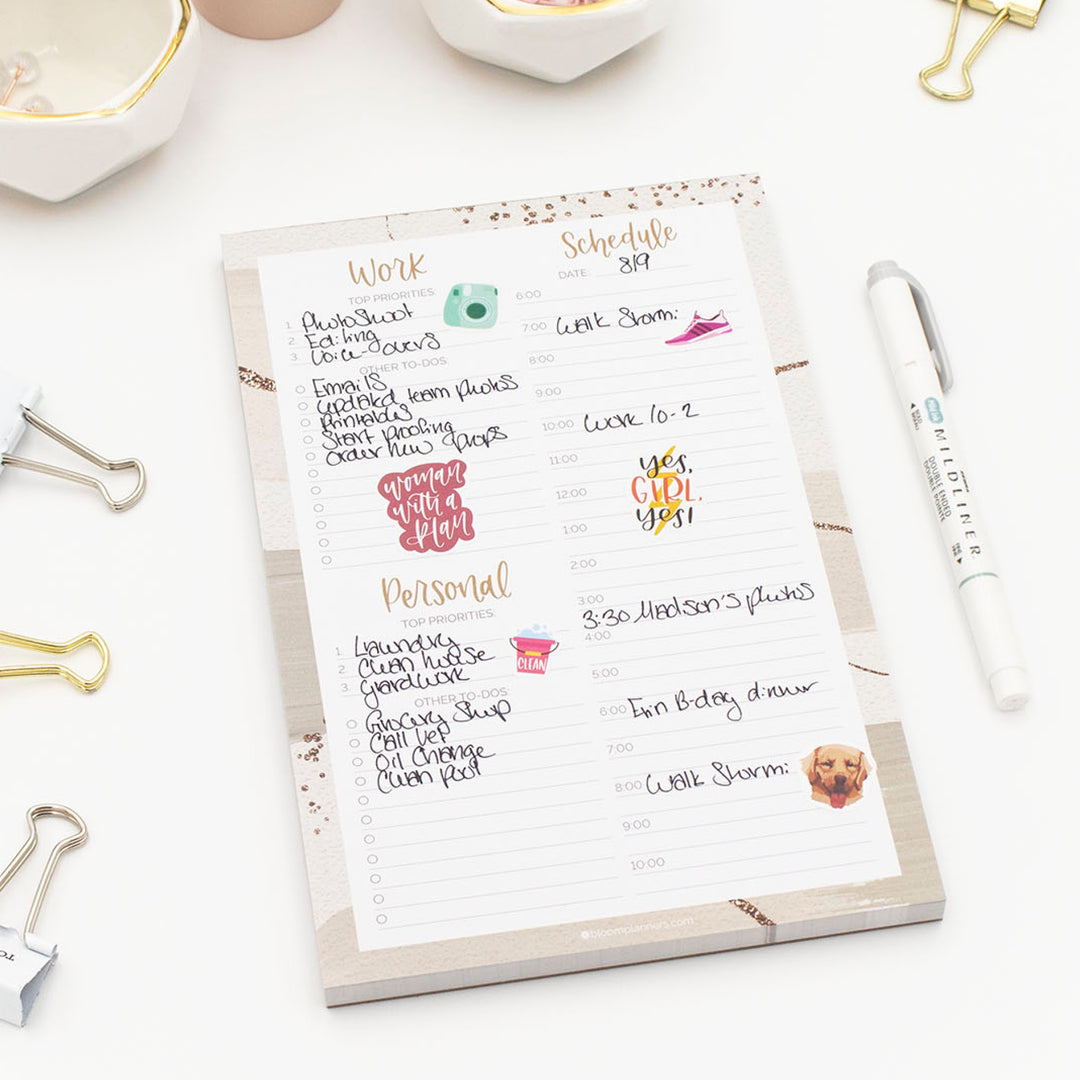 Work
TOP PRIORITIES:
1. Photoshoot
2. Editing
3. Voice-overs
OTHER TO-DOS:
Emails
updated team photos
Printables
Start proofing
order new props
woman
with a
plan
Personal
TOP PRIORITIES:
1. Laundry
2. Clean house
3. Yardwork
CLEAN
OTHER TO-DOS:
Grocery Shop
Call Vet
Oil Change
Clean pool
Schedule
DATE: 8/9
6:00
7:00 Walk Stormi
8:00
9:00
10:00 Work 10-2
11:00
yes,
GIRL,
yes!
12:00
1:00
2:00
3:00
3:30 Madison's photos
4:00
5:00
6:00 Erin B-day dinner
7:00
8:00 Walk Stormi
9:00
10:00
bloomplanners.com
MILDLINER
DOUBLE ENDED